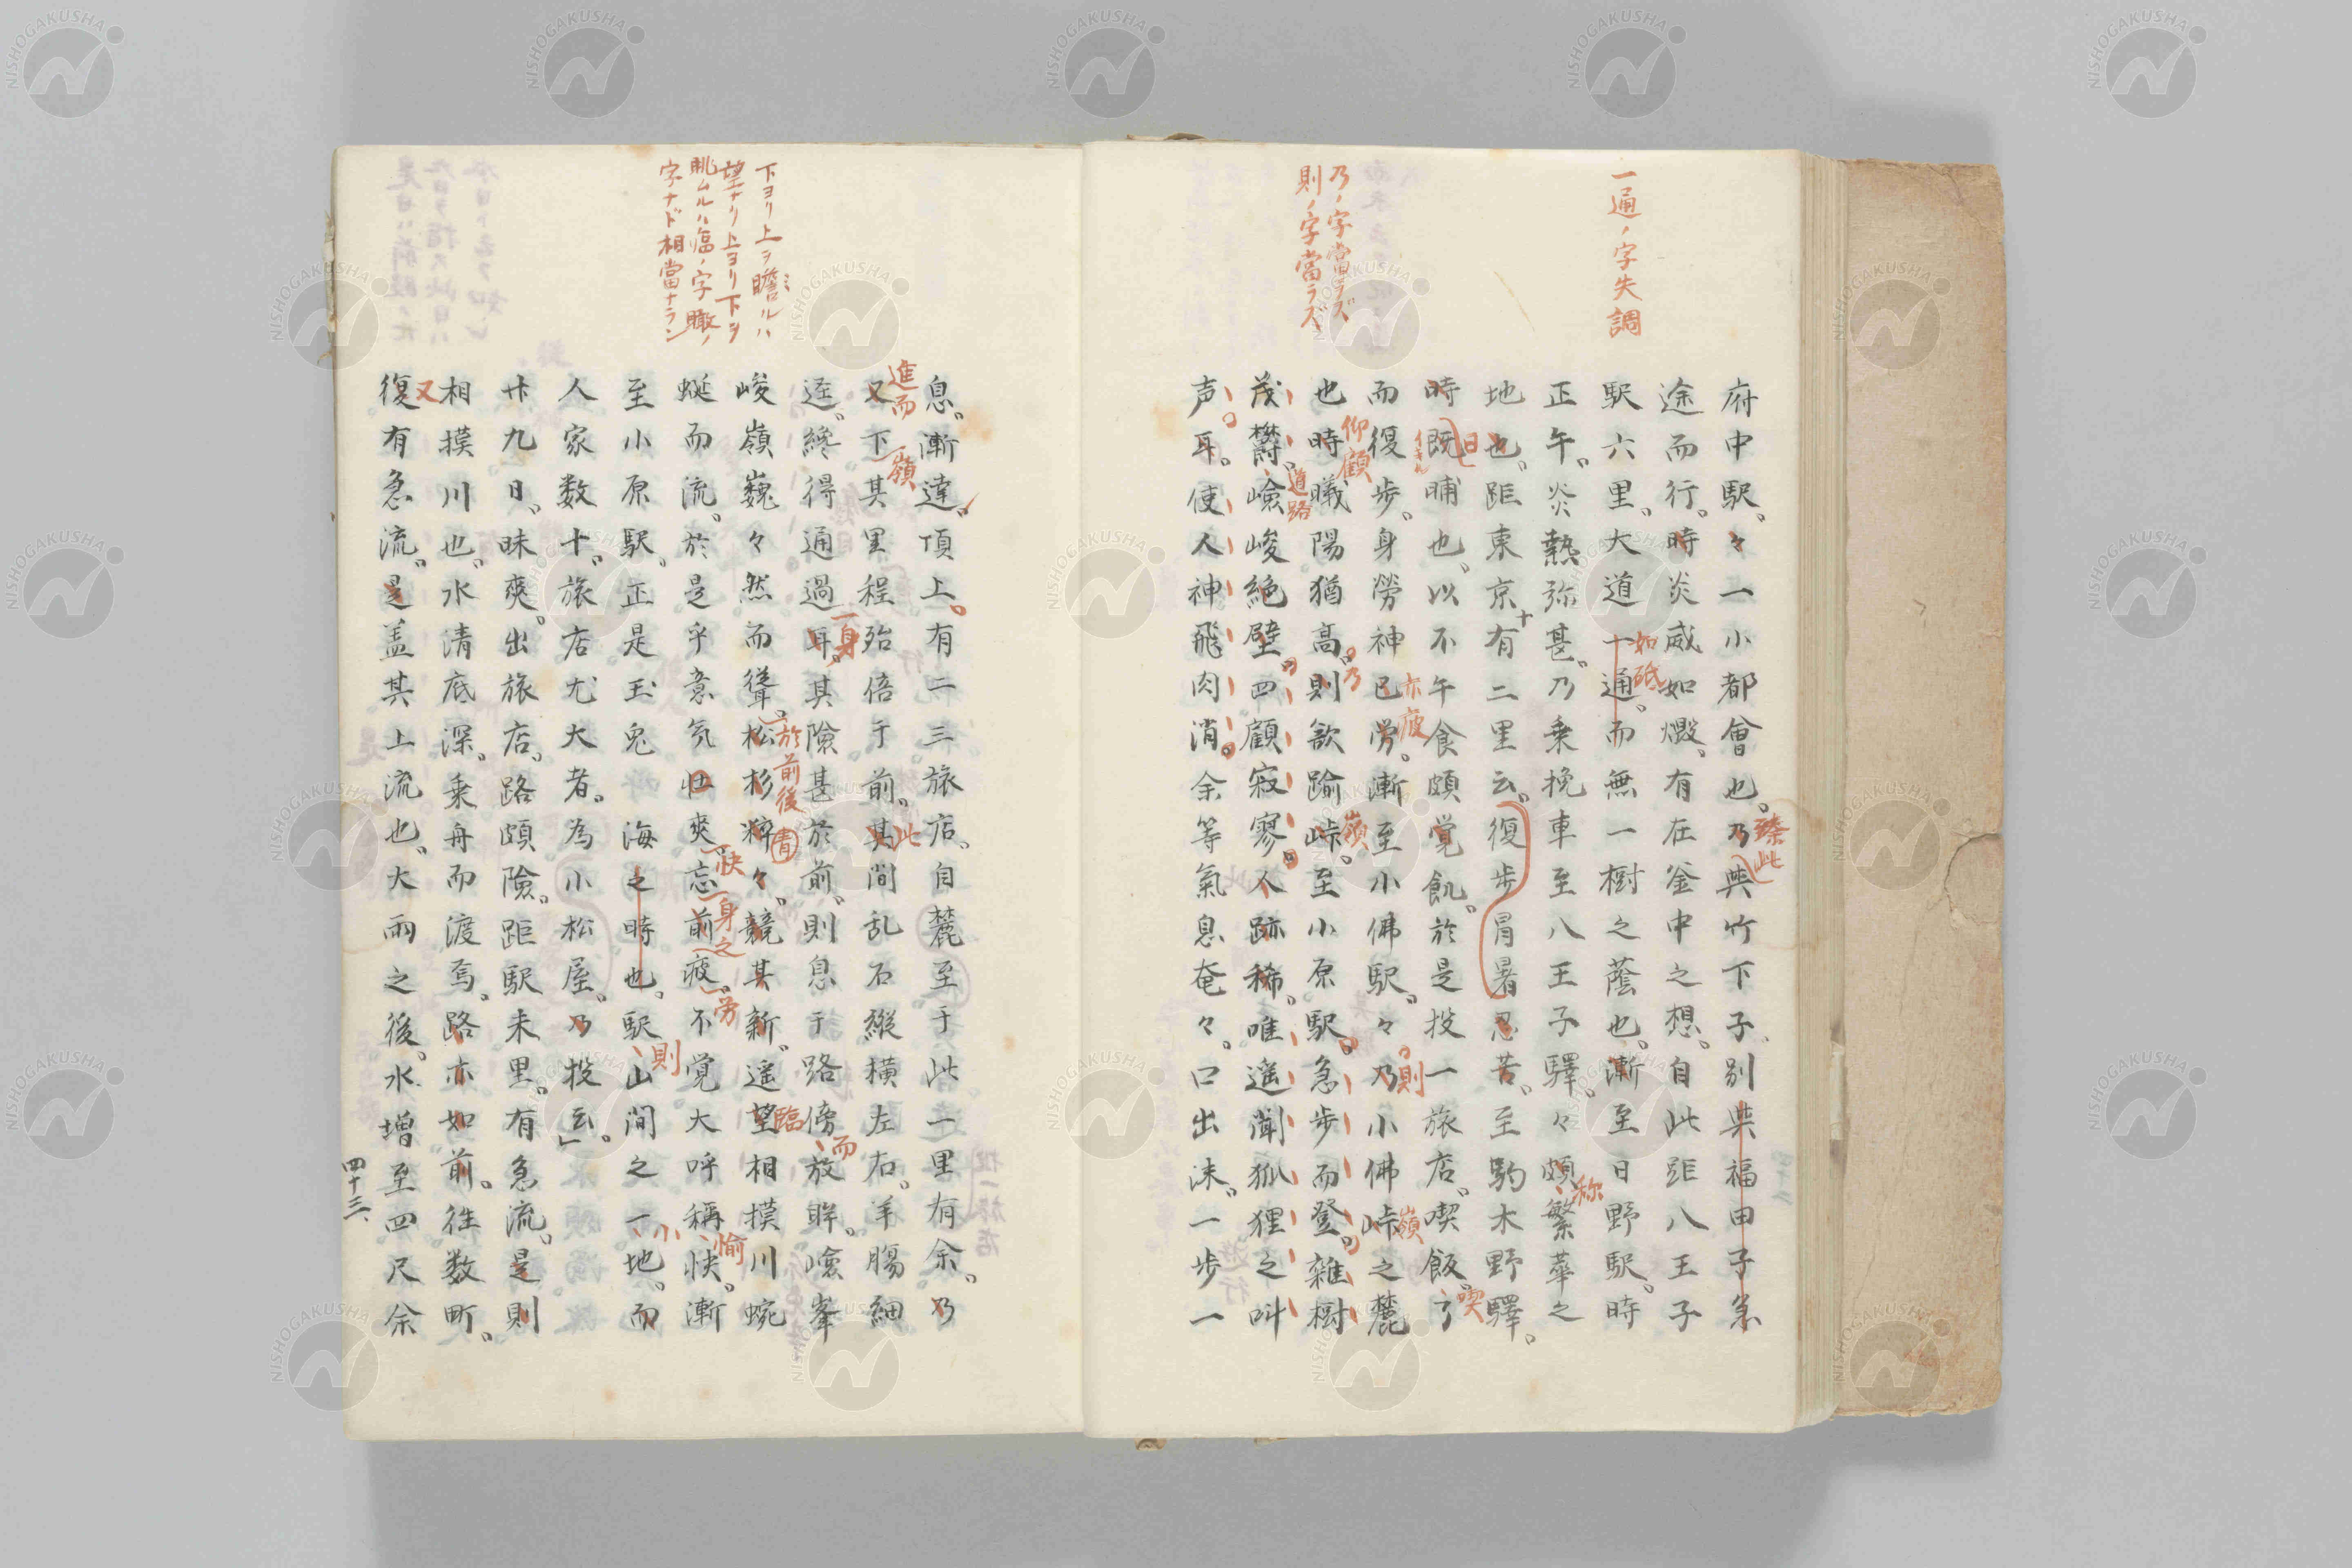 一通ノ字失調
乃ノ字當ラズ
則ノ字當ラズ
府中駅々一小都會也乃與竹下子別與福田子急
臻此
途而行時炎威如燬有在釜中之想自此距八王子
駅六里大道一通而無一樹之蔭也漸至日野駅時
如砥
正午炎熱弥甚乃乗挽車至八王子驛々頗繁華之
称
地也距東京十有二里云復歩冒暑忍苦至駒木野驛
時既晡也以不午食頗覚飢於是投一旅店喫飯了
日已
喫
而復歩身勞神已労漸至小佛駅々乃小佛峠之麓
亦疲
則
嶺
也時曦陽猶高則欲踰峠至小原駅急歩而登雑樹
仰顧
乃
嶺
茂欝嶮峻絶壁四顧寂寥人跡稀唯遥聞狐狸之叫
道路
声耳使人神飛肉消余等氣息奄々口出沫一歩一
下ヨリ上ヲ瞻ルハ
望ナリ上ヨリ下ヲ
眺ムルハ臨ノ字瞰ノ
字ナド相當ナラン
息漸達頂上有二三旅店自麓至于此一里有余乃
又下其里程殆倍于前其间乱石縦横左右羊膓細
進而
嶺
此
逕纔得通過耳其險甚於前則息于路傍放眸嶮峯
一身
而
峻嶺巍々然而聳松杉粹々競其新遥望相摸川蜿
於前後
青
臨
蜒而流於是乎意気壮爽忘前疲不覚大呼稱快漸
快
一身之
労
愉
至小原駅正是玉兎海之時也駅山间之一地而
則
小
人家数十旅店尤大者為小松屋乃投云
廿九日昧爽出旅店路頗險距駅未里有急流是則
相摸川也水清底深乗舟而渡焉路亦如前徃数町
復有急流是盖其上流也大雨之後水増至四尺余
又
四十三
NISHOGAKUSHA